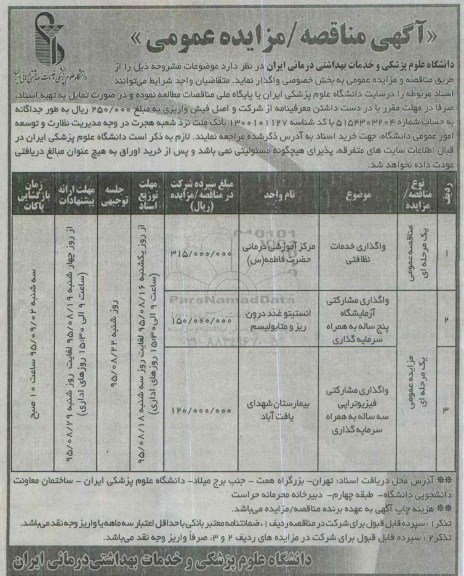 «آگهی مناقصه/مزایده عمومی»
دانشگاه علوم پزشکی و خدمات بهداشتی درمانی ایران در نظر دارد موضوعات مشروحه ذیل را از
طریق مناقصه و مزایده عمومی به بخش خصوصی واگذار نماید. متقاضیان واجد شرایط می‌توانند
اسناد مربوطه را درسایت دانشگاه علوم پزشکی ایران یا پایگاه ملی مناقصات مطالعه نموده و در صورت تمایل به تهیه اسناد،
صرفا در مهلت مقرر با در دست داشتن معرفینامه از شرکت و اصل فیش واریزی به مبلغ ۲۵۰/۰۰۰ ریال به طور جداگانه
به حساب شماره با کد شناسه بانک ملت نزد شعبه هجرت در وجه مدیریت نظارت و توسعه
امور عمومی دانشگاه، جهت خرید اسناد به آدرس ذکرشده مراجعه نمایند. لازم به ذکر است دانشگاه علوم پزشکی ایران در
قبال اطلاعات سایت های متفرقه، پذیرای هیچگونه مسئولیتی نمی باشد و پس از خرید اوراق به هیچ عنوان مبالغ دریافتی
عودت داده نخواهد شد.
ردیف
نوع مناقصه/ مزایده
موضوع
نام واحد
مبلغ سپرده شرکت در مناقصه/مزایده (ریال)
مهلت توزیع اسناد
جلسه توجیهی
مهلت ارائه پیشنهادات
زمان بازگشایی پاکات
۱
مناقصه عمومی یک مرحله ای
واگذاری خدمات نظافتی
مرکز آموزشی درمانی حضرت فاطمه(س)
۳۱۵/۰۰۰/۰۰۰
از روز یکشنبه ۹۵/۰۸/۱۶ لغایت روز سه شنبه ۹۵/۰۸/۱۸
(ساعت ۹ الی ۱۵:۳۰ روزهای اداری)
روز شنبه ۹۵/۰۸/۲۲
از روز چهارشنبه ۹۵/۰۸/۱۹ لغایت روز شنبه ۹۵/۰۸/۲۹
(ساعت ۹ الی ۱۵:۳۰ روزهای اداری)
سه شنبه ۹۵/۰۹/۰۲ ساعت ۱۰ صبح
۲
مزایده عمومی یک مرحله ای
واگذاری مشارکتی آزمایشگاه پنج ساله به همراه سرمایه گذاری
انستیتو غدد درون ریز و متابولیسم
۱۵۰/۰۰۰/۰۰۰
۳
واگذاری مشارکتی فیزیوتراپی سه ساله به همراه سرمایه گذاری
بیمارستان شهدای یافت آباد
۱۲۰/۰۰۰/۰۰۰
ParsNamadData
** آدرس محل دریافت اسناد: تهران- بزرگراه همت - جنب برج میلاد- دانشگاه علوم پزشکی ایران - ساختمان معاونت
دانشجویی دانشگاه- طبقه چهارم- دبیرخانه محرمانه حراست
** هزینه چاپ آگهی به عهده برنده مناقصه/مزایده می‌باشد.
تذکر۱: سپرده قابل قبول برای شرکت در مناقصه ردیف ۱، ضمانتنامه معتبر بانکی با حداقل اعتبار سه ماهه یا واریز وجه نقد می‌باشد.
تذکر۲: سپرده قابل قبول برای شرکت در مزایده های ردیف ۲ و ۳، صرفاً واریز وجه نقد می‌باشد.
دانشگاه علوم پزشکی و خدمات بهداشتی درمانی ایران